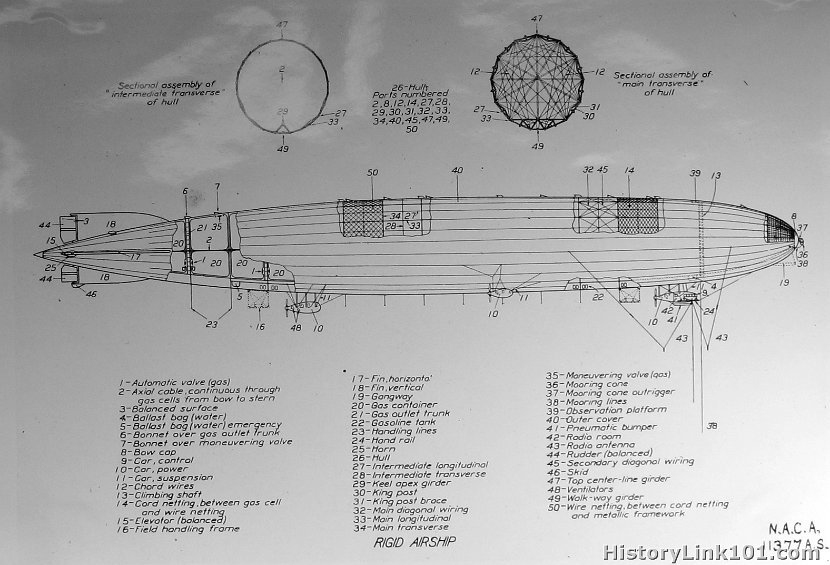 47
47
Sectional assembly of
"intermediate transverse"
of hull
2
29
27
33
49
26-Hull:
Parts numbered
2,8,12,14,27,28,
29,30,31,32,33,
34,40,45,47,49,
50
12
12
27
33
31
30
49
Sectional assembly of
"main transverse"
of hull
6
7
50
40
32 45
14
39
13
44
3
18
15
21
35
34
27
28
33
8
37
36
38
19
25
44
46
17
18
20
2
1
20
20
1
20
5
23
16
48
11
10
11
10
22
10
42
41
4
9
24
11
43
43
43
38
1-Automatic valve (gas)
2-Axial cable, continuous through
gas cells from bow to stern
3-Balanced surface
4-Ballast bag (water)
5-Ballast bag (water) emergency
6-Bonnet over gas outlet trunk
7-Bonnet over maneuvering valve
8-Bow cap
9-Car, control
10-Car, power
11-Car, suspension
12-Chord wires
13-Climbing shaft
14-Cord netting, between gas cell
and wire netting
15-Elevator (balanced)
16-Field handling frame
17-Fin, horizontal
18-Fin, vertical
19-Gangway
20-Gas container
21-Gas outlet trunk
22-Gasoline tank
23-Handling lines
24-Hand rail
25-Horn
26-Hull
27-Intermediate longitudinal
28-Intermediate transverse
29-Keel apex girder
30-King post
31-King post brace
32-Main diagonal wiring
33-Main longitudinal
34-Main transverse
35-Maneuvering valve (gas)
36-Mooring cone
37-Mooring cone outrigger
38-Mooring lines
39-Observation platform
40-Outer cover
41-Pneumatic bumper
42-Radio room
43-Radio antenna
44-Rudder (balanced)
45-Secondary diagonal wiring
46-Skid
47-Top center-line girder
48-Ventilators
49-Walk-way girder
50-Wire netting, between cord netting
and metallic framework
RIGID AIRSHIP
N.A.C.A.
11377 A.S.
HistoryLink101.com